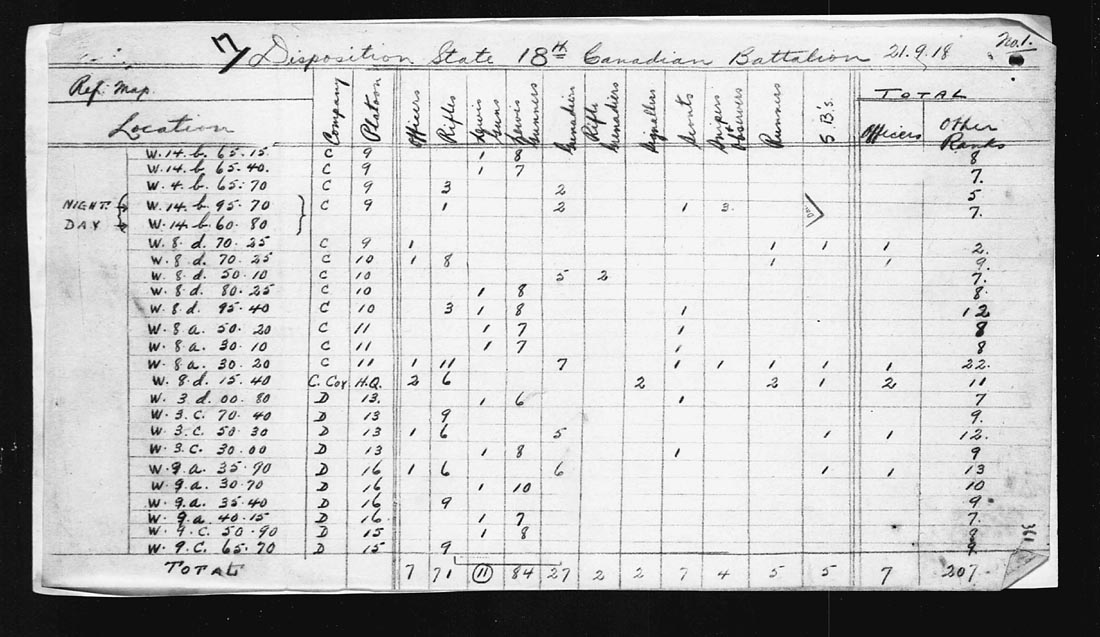 7 Disposition State 18TH Canadian Battalion 21.9.18 No.1.
Ref: Map. Location Company Platoon Officers Rifles Lewis Guns Lewis Gunners Grenadiers Rifle Grenadiers Signallers Scouts Snipers & Observers Runners S.B's. TOTAL Officers Other Ranks
W.14.b. 65.15. C 9 1 8 8
W.14.b. 65.40. C 9 1 7 7.
W.4.b. 65.70 C 9 3 2 5
NIGHT W.14.b. 95.70 C 9 1 2 1 3. 7.
DAY W.14.b. 60.80
W.8.d. 70.25 C 9 1 1 1 1 2.
W.8.d. 70.25 C 10 1 8 1 1 9.
W.8.d. 50.10 C 10 5 2 7.
W.8.d. 80.25 C 10 1 8 8.
W.8.d. 95.40 C 10 3 1 8 1 12
W.8.a. 50.20 C 11 1 7 1 8
W.8.a. 30.10 C 11 1 7 1 8
W.8.a. 30.20 C 11 1 11 7 1 1 1 1 1 22.
W.8.d. 15.40 C. Coy H.Q. 2 6 2 2 1 2 11
W.3.d. 00.80 D 13. 1 6 1 7
W.3.C. 70.40 D 13 9 9.
W.3.C. 50.30 D 13 1 6 5 1 1 12.
W.3.C. 30.00 D 13 1 8 1 9
W.9.a. 35.90 D 16 1 6 6 1 1 13
W.9.a. 30.70 D 16 1 10 10
W.9.a. 35.40 D 16 9 9
W.9.a. 40.15 D 16. 1 7 7.
W.9.C. 50.90 D 15 1 8 8
W.9.C. 65.70 D 15 9 9
TOTAL 7 71 11 84 27 2 2 7 4 5 5 7 207